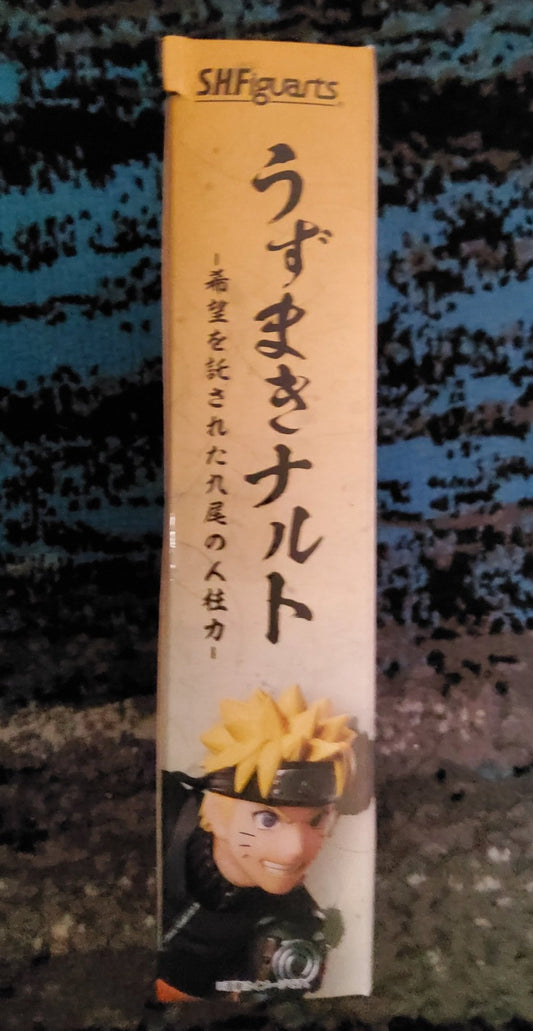 S.H.Figuarts
うずまきナルト
-希望を託された九尾の人柱力-